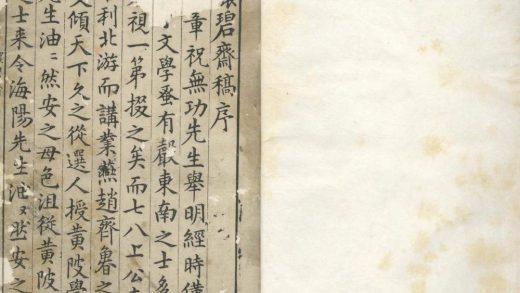 碧齋稿序
章祝無功先生舉明經時
文學蚤有聲東南之士多
視一第掇之矣而七八上公
利北游而講業燕趙齊魯之
傾天下久之從選人授黃陂學
生油〻然安之毋色沮從黃陂
士来令海陽先生
安之